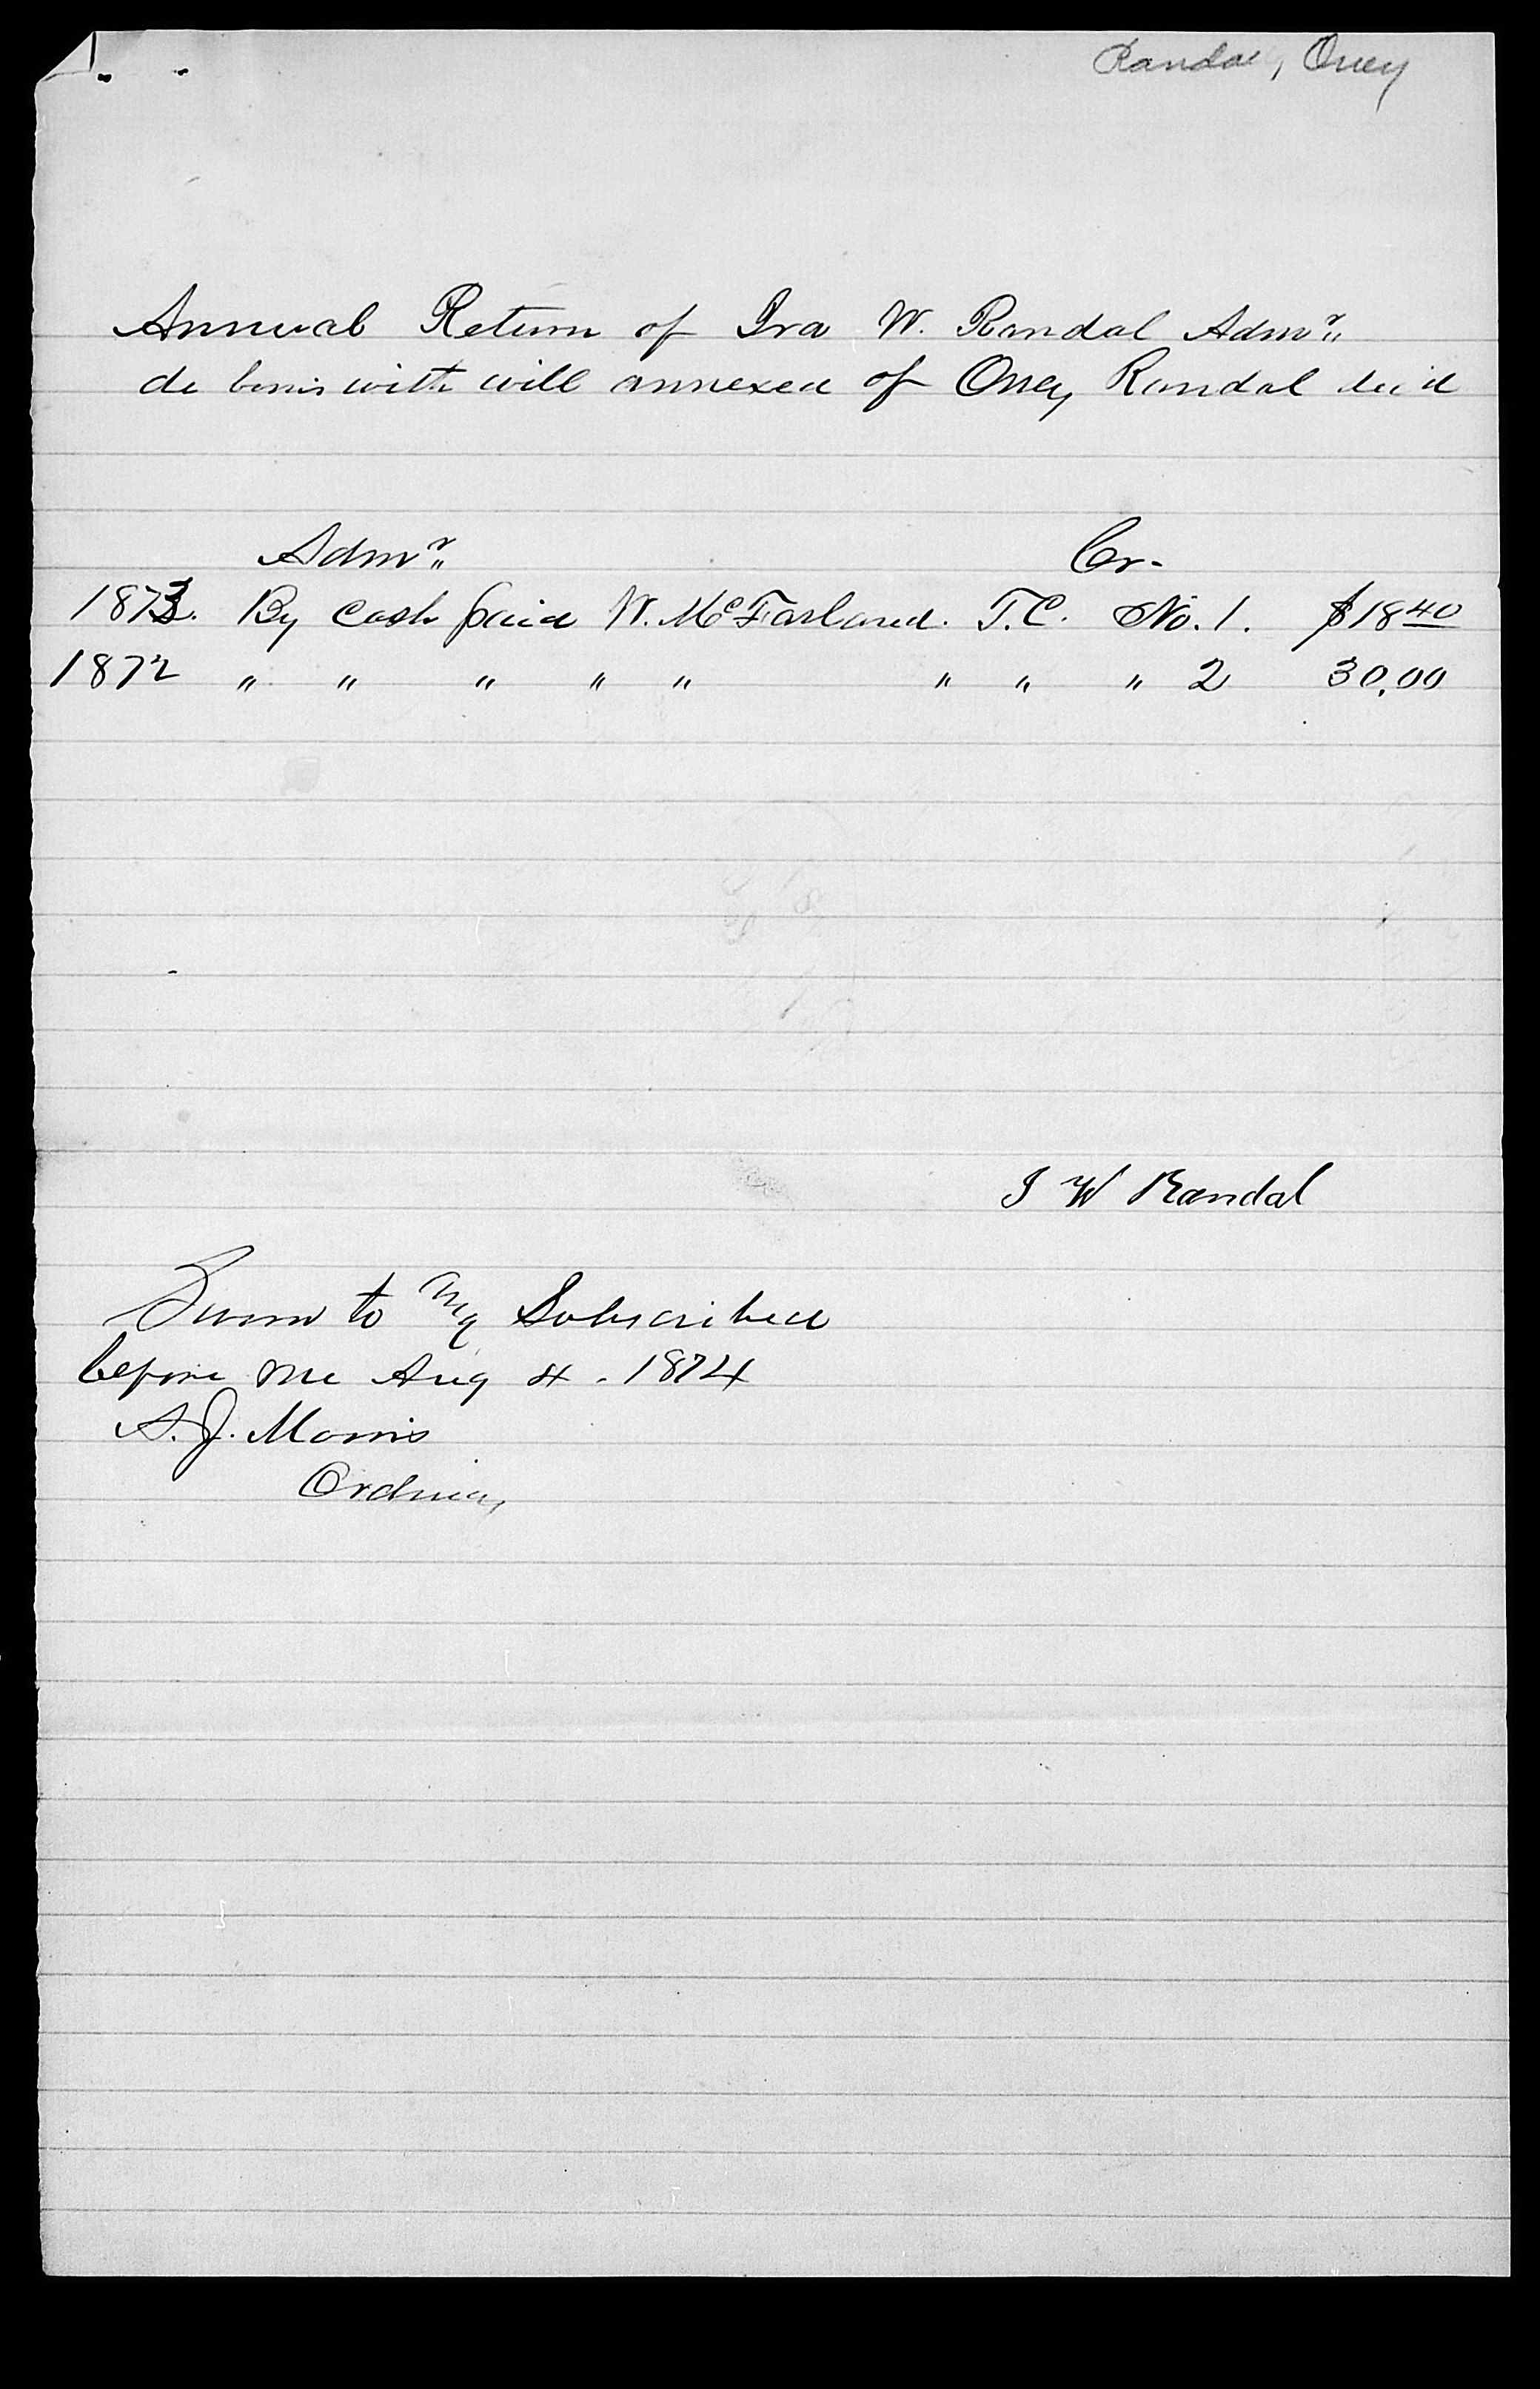 Randal, Oney
Annual Return of Ira W. Randal Admr.
de bonis with will annexed of Oney Randal dec'd
Admr. Cr.
1873. By Cash paid W. McFarland. T.C. No. 1. $18 40
1872 " " " " " " " " 2 30.00
I W Randal
Sworn to & Subscribed
before me Aug 4. 1874
A. J. Morris
Ordinary